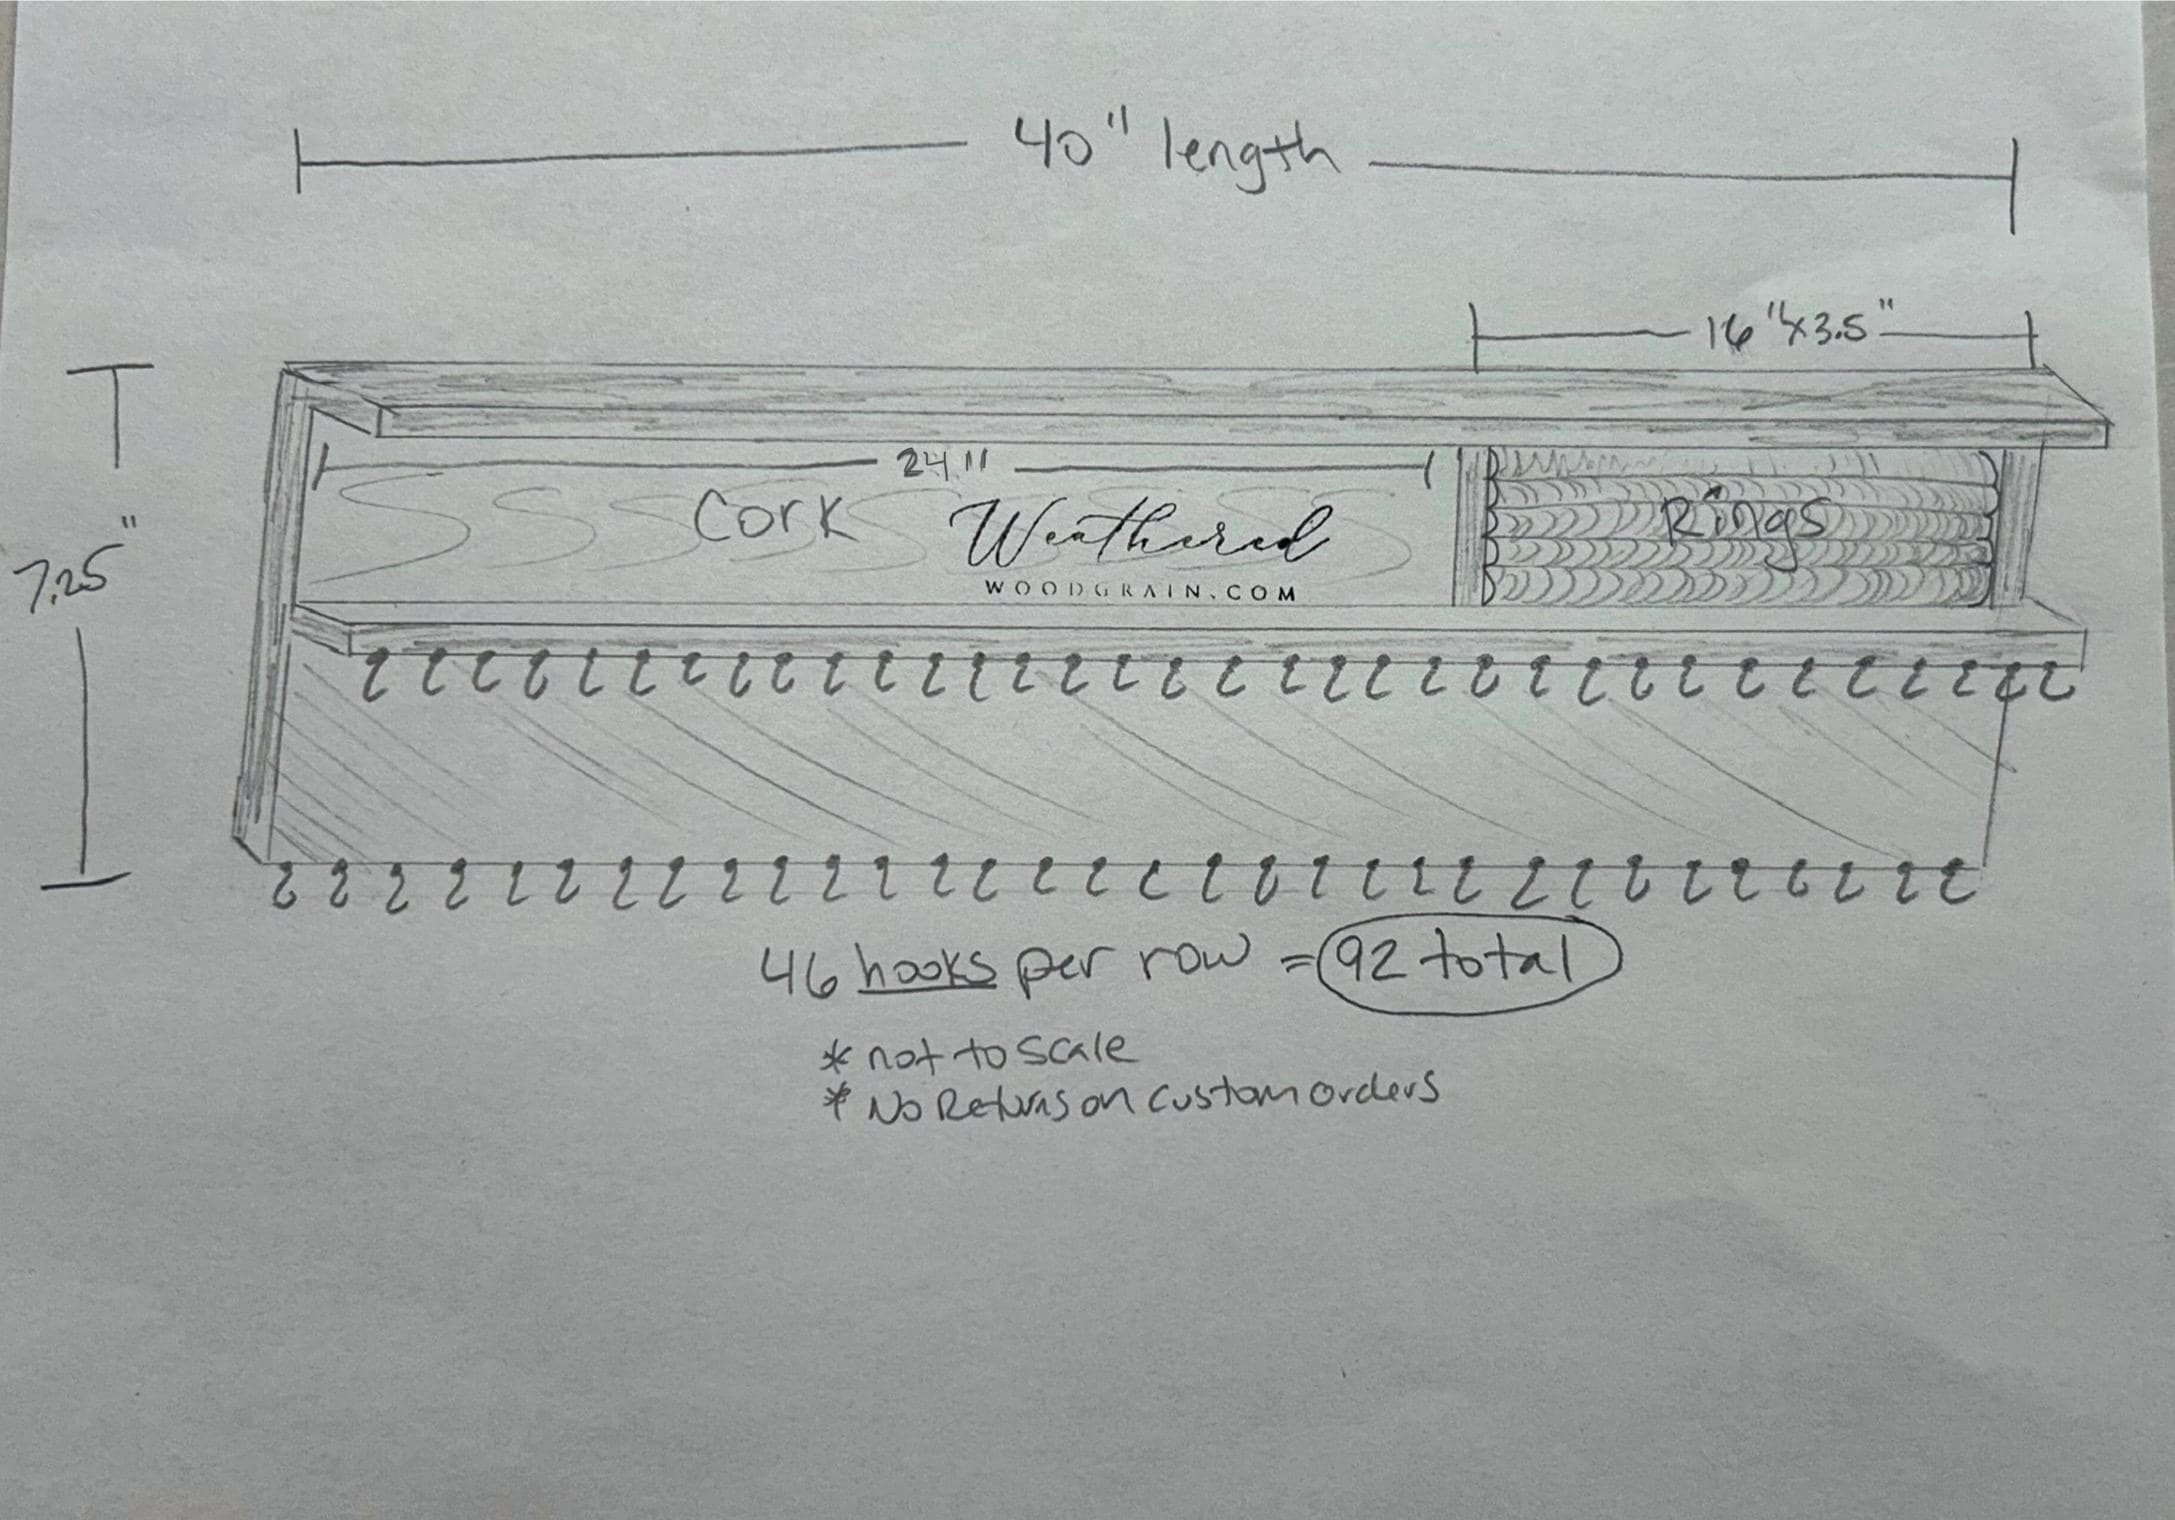 40" length
16"x3.5"
24"
Cork
Weathered
WOODGRAIN.COM
Rings
7.25"
46 hooks per row = 92 total
* not to scale
* No Returns on custom orders